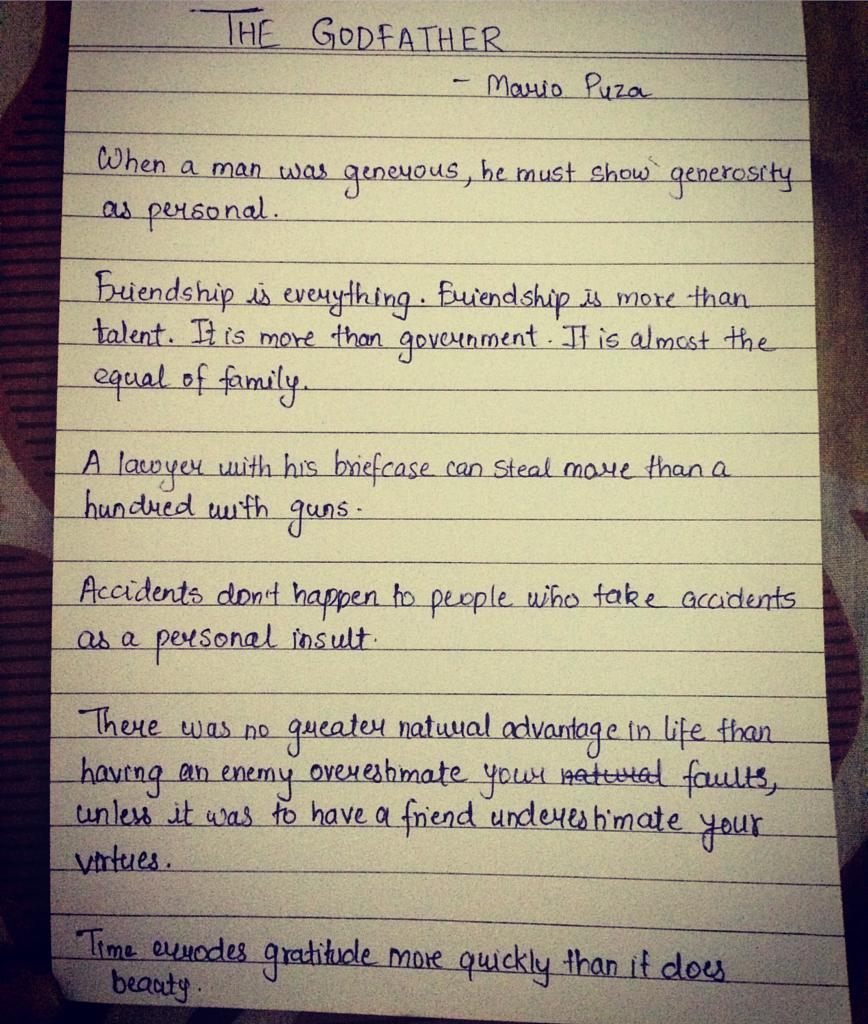 THE GODFATHER
- Mario Puza
When a man was generous, he must show generosity
as personal.
Friendship is everything. Friendship is more than
talent. It is more than government. It is almost the
equal of family.
A lawyer with his briefcase can steal more than a
hundred with guns.
Accidents don't happen to people who take accidents
as a personal insult.
There was no greater natural advantage in life than
having an enemy overestimate your natural faults,
unless it was to have a friend underestimate your
virtues.
Time errodes gratitude more quickly than it does
beauty.